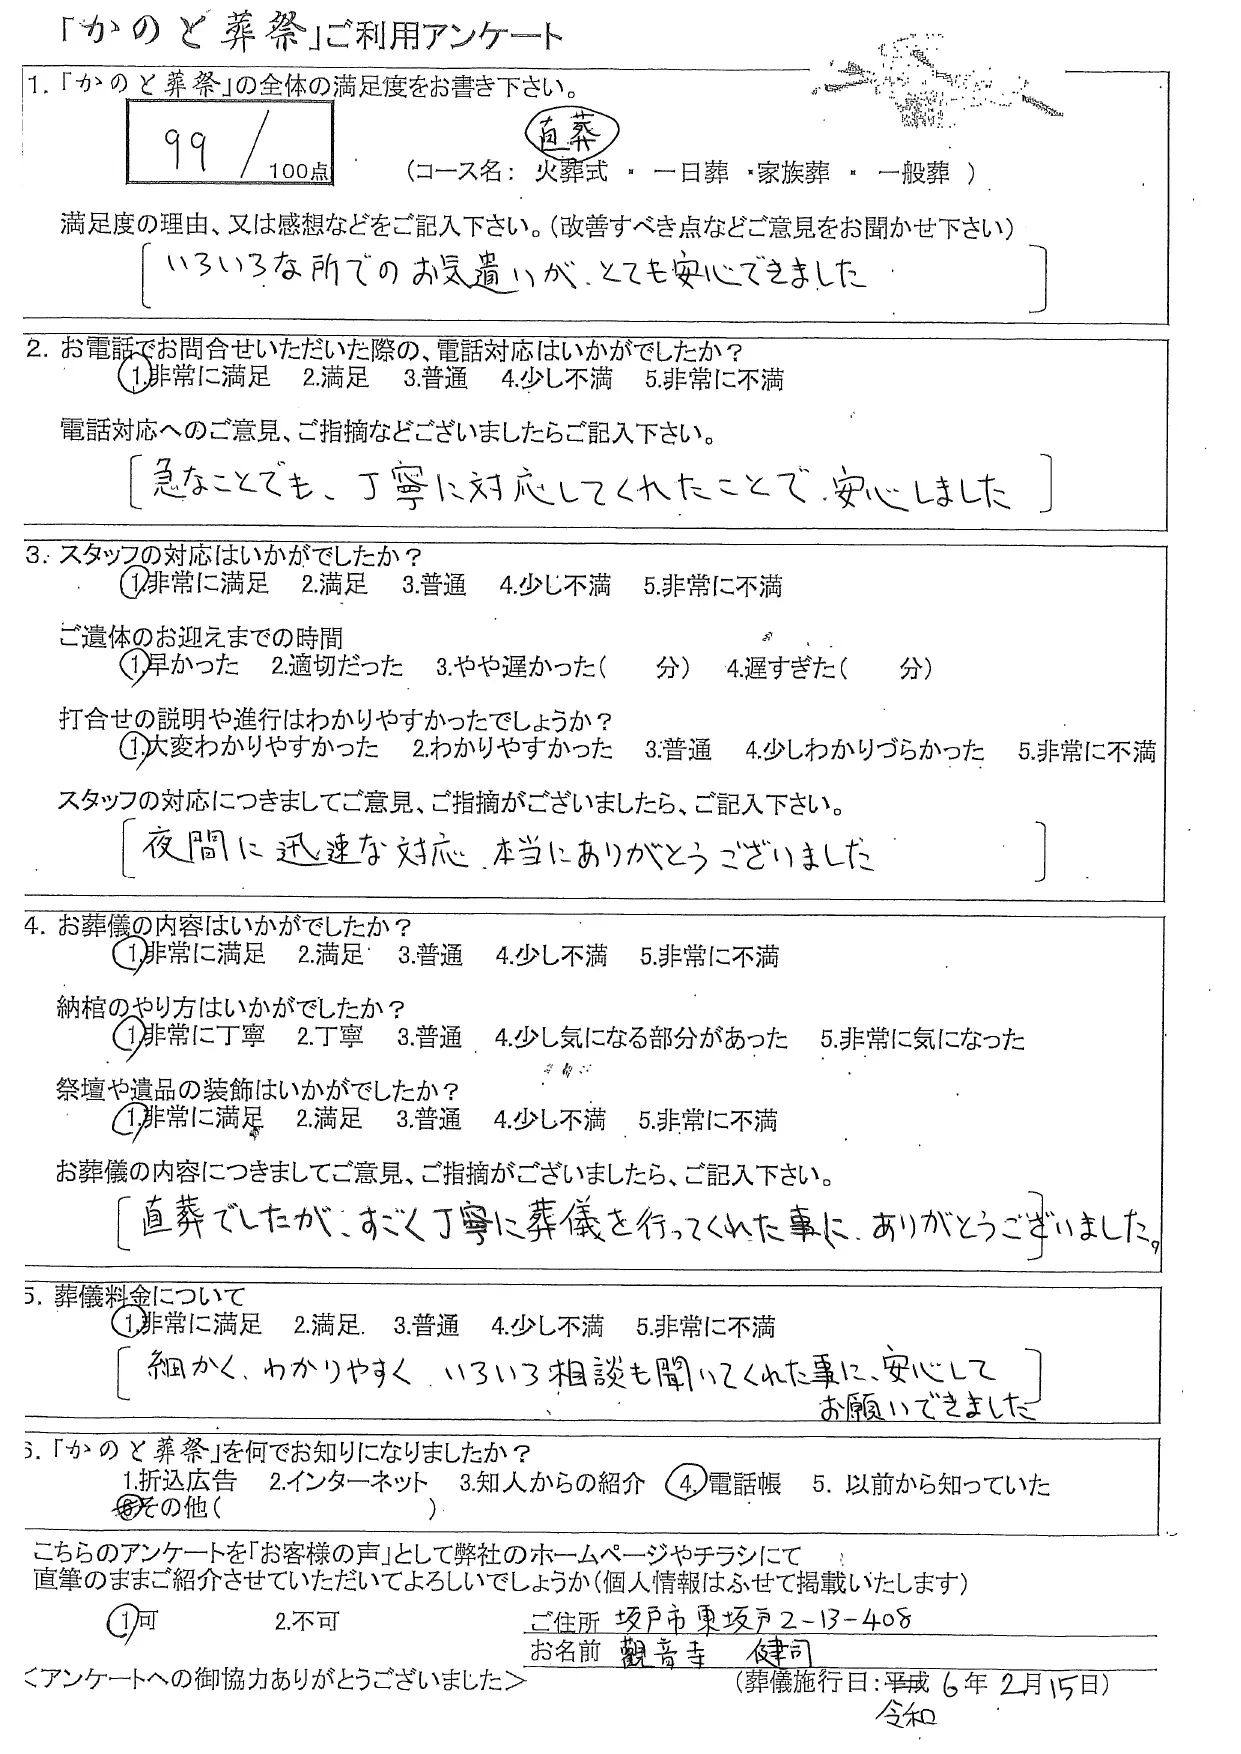 「かのと葬祭」ご利用アンケート
1.「かのと葬祭」の全体の満足度をお書き下さい。
99/100点
直葬
(コース名: 火葬式 ・ 一日葬 ・家族葬 ・ 一般葬 )
満足度の理由、又は感想などをご記入下さい。(改善すべき点などご意見をお聞かせ下さい)
いろいろな所でのお気遣いが、とても安心できました
2. お電話でお問合せいただいた際の、電話対応はいかがでしたか?
1.非常に満足 2.満足 3.普通 4.少し不満 5.非常に不満
電話対応へのご意見、ご指摘などございましたらご記入下さい。
急なことでも、丁寧に対応してくれたことで、安心しました
3. スタッフの対応はいかがでしたか?
1.非常に満足 2.満足 3.普通 4.少し不満 5.非常に不満
ご遺体のお迎えまでの時間
1.早かった 2.適切だった 3.やや遅かった( 分) 4.遅すぎた( 分)
打合せの説明や進行はわかりやすかったでしょうか?
1.大変わかりやすかった 2.わかりやすかった 3.普通 4.少しわかりづらかった 5.非常に不満
スタッフの対応につきましてご意見、ご指摘がございましたら、ご記入下さい。
夜間に迅速な対応、本当にありがとうございました
4. お葬儀の内容はいかがでしたか?
1.非常に満足 2.満足 3.普通 4.少し不満 5.非常に不満
納棺のやり方はいかがでしたか?
1.非常に丁寧 2.丁寧 3.普通 4.少し気になる部分があった 5.非常に気になった
祭壇や遺品の装飾はいかがでしたか?
1.非常に満足 2.満足 3.普通 4.少し不満 5.非常に不満
お葬儀の内容につきましてご意見、ご指摘がございましたら、ご記入下さい。
直葬でしたが、すごく丁寧に葬儀を行ってくれた事に、ありがとうございました。
5. 葬儀料金について
1.非常に満足 2.満足 3.普通 4.少し不満 5.非常に不満
細かく、わかりやすく、いろいろ相談も聞いてくれた事に、安心して
お願いできました
6.「かのと葬祭」を何でお知りになりましたか?
1.折込広告 2.インターネット 3.知人からの紹介 4.電話帳 5. 以前から知っていた
その他( )
こちらのアンケートを「お客様の声」として弊社のホームページやチラシにて
直筆のままご紹介させていただいてよろしいでしょうか(個人情報はふせて掲載いたします)
1.可 2.不可 ご住所 坂戸市東坂戸2-13-408
お名前 観音寺 健司
<アンケートへの御協力ありがとうございました> (葬儀施行日:平成 6年 2月15日)
令和